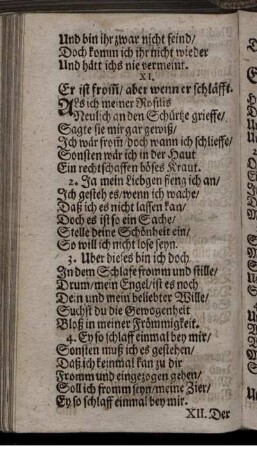 Und bin ihr zwar nicht feind/
Doch komm ich ihr nicht wieder
Und hätt ichs nie vermeint.
XI.
Er ist from̃/ aber wenn er schläfft.
Als ich meiner Rosilis
Neulich an den Schürtze grieffe/
Sagte sie mir gar gewiß/
Ich wär from̃/ doch wann ich schlieffe/
Sonsten wär ich in der Haut
Ein rechtschaffen böses Kraut.
2. Ja mein Liebgen fieng ich an/
Ich gesteh es/ wenn ich wache/
Daß ich es nicht lassen kan/
Doch es ist so ein Sache/
Stelle deine Schönheit ein/
So will ich nicht lose seyn.
3. Uber dieses bin ich doch
In dem Schlafe fromm und stille/
Drum/ mein Engel/ ist es noch
Dein und mein beliebter Wille/
Suchst du die Gewogenheit
Bloß in meiner Frömmigkeit.
4. Ey so schlaff einmal bey mir/
Sonsten muß ich es gestehen/
Daß ich keinmal kan zu dir
Fromm und eingezogen gehen/
Soll ich fromm seyn/ meine Zier/
Ey so schlaff einmal bey mir.
XII. Der